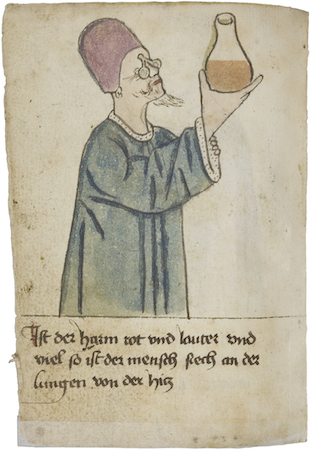 Ist der harm rot vnd lauter vnd
viel so ist der mensch siech an der
lungen von der hitz